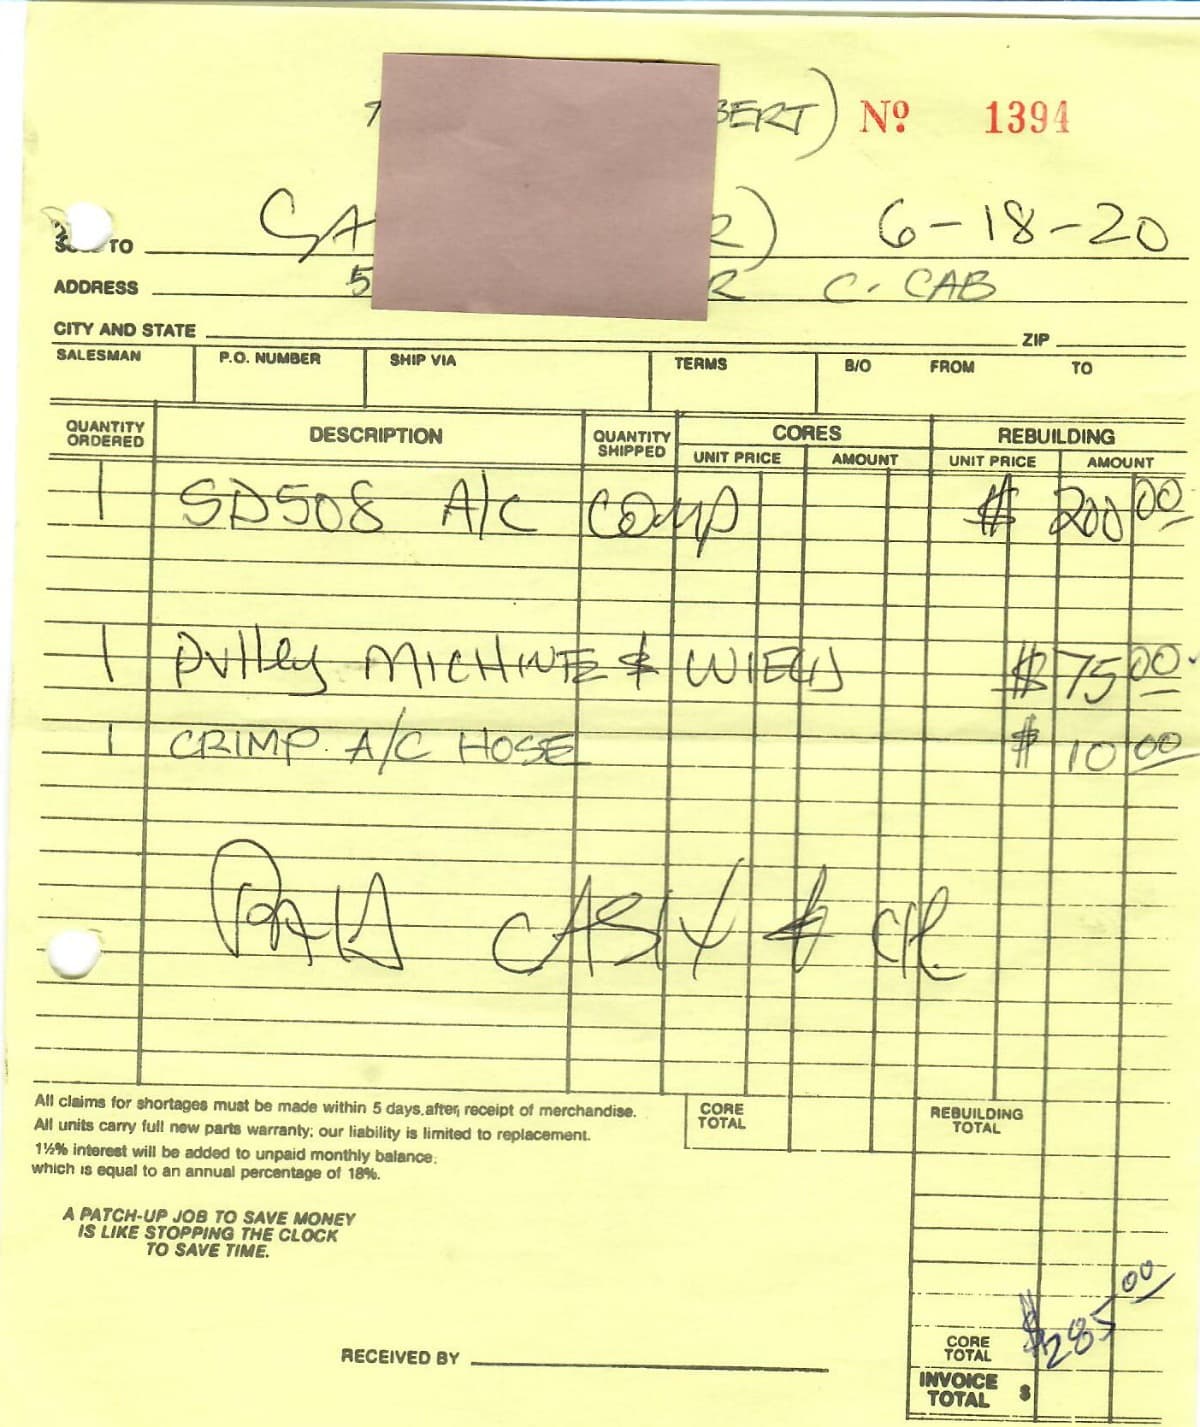 BERT) Nº 1394
SA R) 6-18-20
SOLD TO
ADDRESS 5 R C. CAB
CITY AND STATE ZIP
SALESMAN P.O. NUMBER SHIP VIA TERMS B/O FROM TO
QUANTITY ORDERED DESCRIPTION QUANTITY SHIPPED CORES REBUILDING
UNIT PRICE AMOUNT UNIT PRICE AMOUNT
1 SD508 A/C COMP $ 200 00
1 PULLEY MICHINE & $ 75 00
1 CRIMP. A/C HOSE $ 10 00
PAID CASH &
All claims for shortages must be made within 5 days after receipt of merchandise.
All units carry full new parts warranty; our liability is limited to replacement.
1½% interest will be added to unpaid monthly balance;
which is equal to an annual percentage of 18%.
CORE TOTAL REBUILDING TOTAL
A PATCH-UP JOB TO SAVE MONEY
IS LIKE STOPPING THE CLOCK
TO SAVE TIME.
RECEIVED BY
CORE TOTAL $285 00
INVOICE TOTAL $